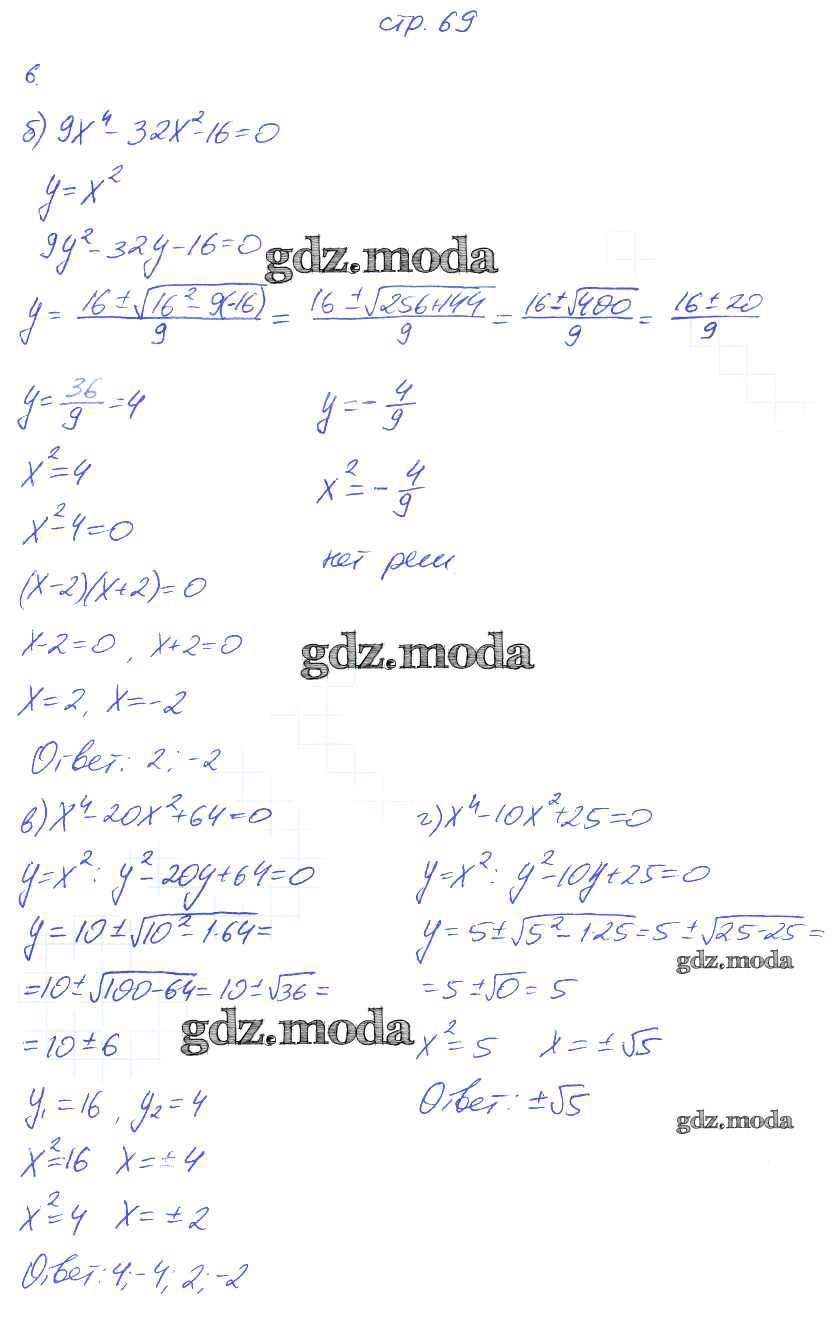 стр. 69
6.
б) 9x⁴ - 32x² - 16 = 0
y = x²
9y² - 32y - 16 = 0
gdz.moda
y = (16 ± √(16² - 9(-16)))/9 = (16 ± √(256+144))/9 = (16 ± √400)/9 = (16 ± 20)/9
y = 36/9 = 4
x² = 4
x² - 4 = 0
(x-2)(x+2) = 0
x-2=0, x+2=0
x=2, x=-2
y = -4/9
x² = -4/9
нет реш.
gdz.moda
Ответ: 2; -2
в) x⁴ - 20x² + 64 = 0
y = x²: y² - 20y + 64 = 0
y = 10 ± √(10² - 1·64) =
= 10 ± √(100-64) = 10 ± √36 =
= 10 ± 6
gdz.moda
y₁ = 16, y₂ = 4
x² = 16 x = ± 4
x² = 4 x = ± 2
Ответ: 4; -4; 2; -2
г) x⁴ - 10x² + 25 = 0
y = x²: y² - 10y + 25 = 0
y = 5 ± √(5² - 1·25) = 5 ± √(25-25) =
gdz.moda
= 5 ± √0 = 5
x² = 5 x = ± √5
Ответ: ± √5
gdz.moda